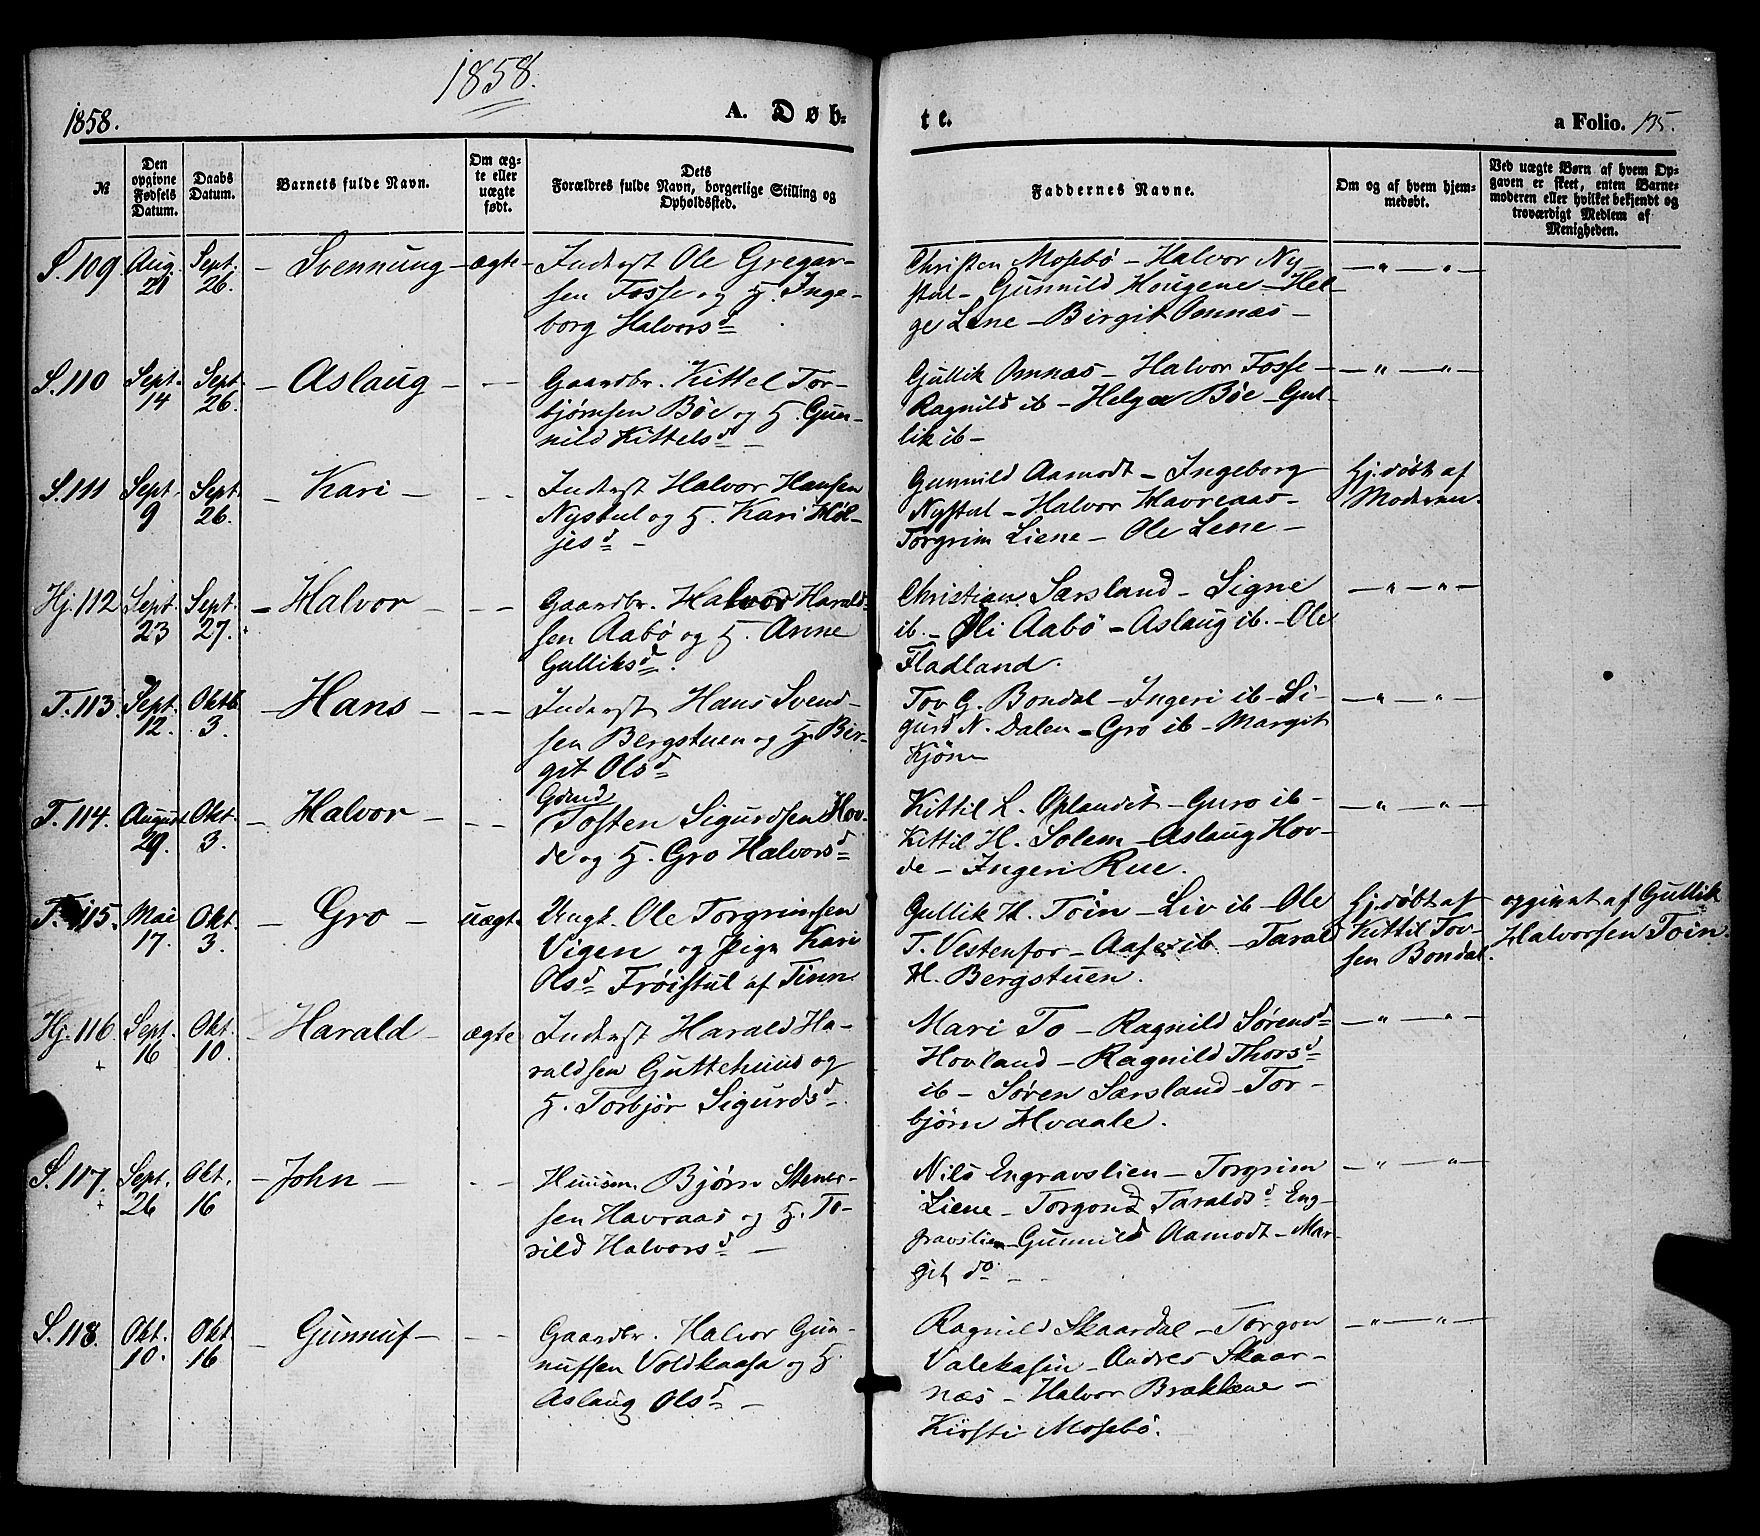 1858.
1858.
A. Døb-
te.
a Folio. 135.
№
Den opgivne Fødsels Datum.
Daabs Datum.
Barnets fulde Navn.
Om ægte eller uægte født.
Dets Forældres fulde Navn, borgerlige Stilling og Opholdssted.
Faddernes Navne.
Om og af hvem hjemmedøbt.
Ved uægte Børn af hvem Opgaven er skeet, enten Barnemoderen eller hvilket bekjendt og troværdigt Medlem af Menigheden.
S. 109 Aug. 21 Sept. 26. – Svennung – ægte – Inderst Ole Gregar-
sen Fosse og H. Inge-
borg Halvorsd
Christen Mosebö – Halvor Ny-
stul – Gunnild Hougene – Hel-
ge Lene – Birgit Omnæs –
– " – " –
S. 110 Sept. 14 Sept. 26. – Aslaug – – – Gaardbr. Kittel Tor-
bjørnsen Bøe og H. Gun-
nild Kittelsd –
Gullik Omnæs – Halvor Fosse –
Ragnild ib – Helga Bøe – Gul-
lik ib –
– " – " –
S. 111 Sept. 9 Sept. 26. – Kari – – – Inderst Halvor Hansen
Nystul og H. Kari Høl-
jesd –
Gunnild Aamodt – Ingeborg
Nystul – Halvor Havreaas –
Torgrim Liene – Ole Lene –
Hj. döbt af
Moderen.
Hj. 112 Sept. 23 Sept. 27. – Halvor – – – Gaardbr. Halvor Harald-
sen Aabö og H. Anne
Gulliksd.
Christian Sarsland – Signe
ib. – Oli Aabö – Aslaug ib. – Ole
Fladland.
– " – " –
T. 113. Sept. 12. Oktb. 3. – Hans – – – Inderst Hans Svend-
sen Bergstuen og H. Bir-
git Olsd
Tov G. Bondal – Ingeri ib – Si-
gurd N. Dalen – Gro ib – Margit
Kjön –
– " – " –
T. 114. August 29. Okt. 3. – Halvor – – – Gdmd
Tosten Sigurdsen Hov-
de og H. Gro Halvorsd
Kittil L. Oplandet – Guro ib –
Kittil H. Solem – Aslaug Hov-
de – Ingeri Rue.
– " – " –
T. 115. Mai 17. Okt. 3. – Gro – uægt. Ungk. Ole Torgrimsen
Vigen og Pige Kari
Olsd Frøistul af Tinn
Gullik H. Toin – Liv ib – Ole
T. Vestenfor – Aase ib – Tarald
H. Bergstuen.
Hj. döbt af
Kittil Tov-
sen Bondal.
opgivet af Gullik
Halvorsen Toin.
Hj. 116. Sept. 16 Okt. 10. – Harald – ægte Inderst Harald Ha-
raldsen Guttehuus og
H. Torbjør Sigurdsd.
Mari To – Ragnild Sørensd
Hovland – Ragnild Thorsd
ib – Søren Sarsland – Tor-
björn Hvaale.
– " – " –
S. 117. Sept. 26 Okt. 16 – John – – – Huusm. Bjørn Stener-
sen Havraas og H. To-
rild Halvorsd –
Nils Engravslien – Torgrim
Liene – Torgond Taraldsd Eng-
gravslien – Gunnild Aamodt – Mar-
git do –
– " – " –
S. 118. Okt. 10. Okt. 16 – Gunnuf – – – Gaardbr. Halvor Gun-
nufsen Voldkaasa og H.
Aslaug Olsd –
Ragnild Skaardal – Torgon
Valekasin – Andres Skaar-
næs – Halvor Brækkene –
Kirsti Mosebö.
– " – " –